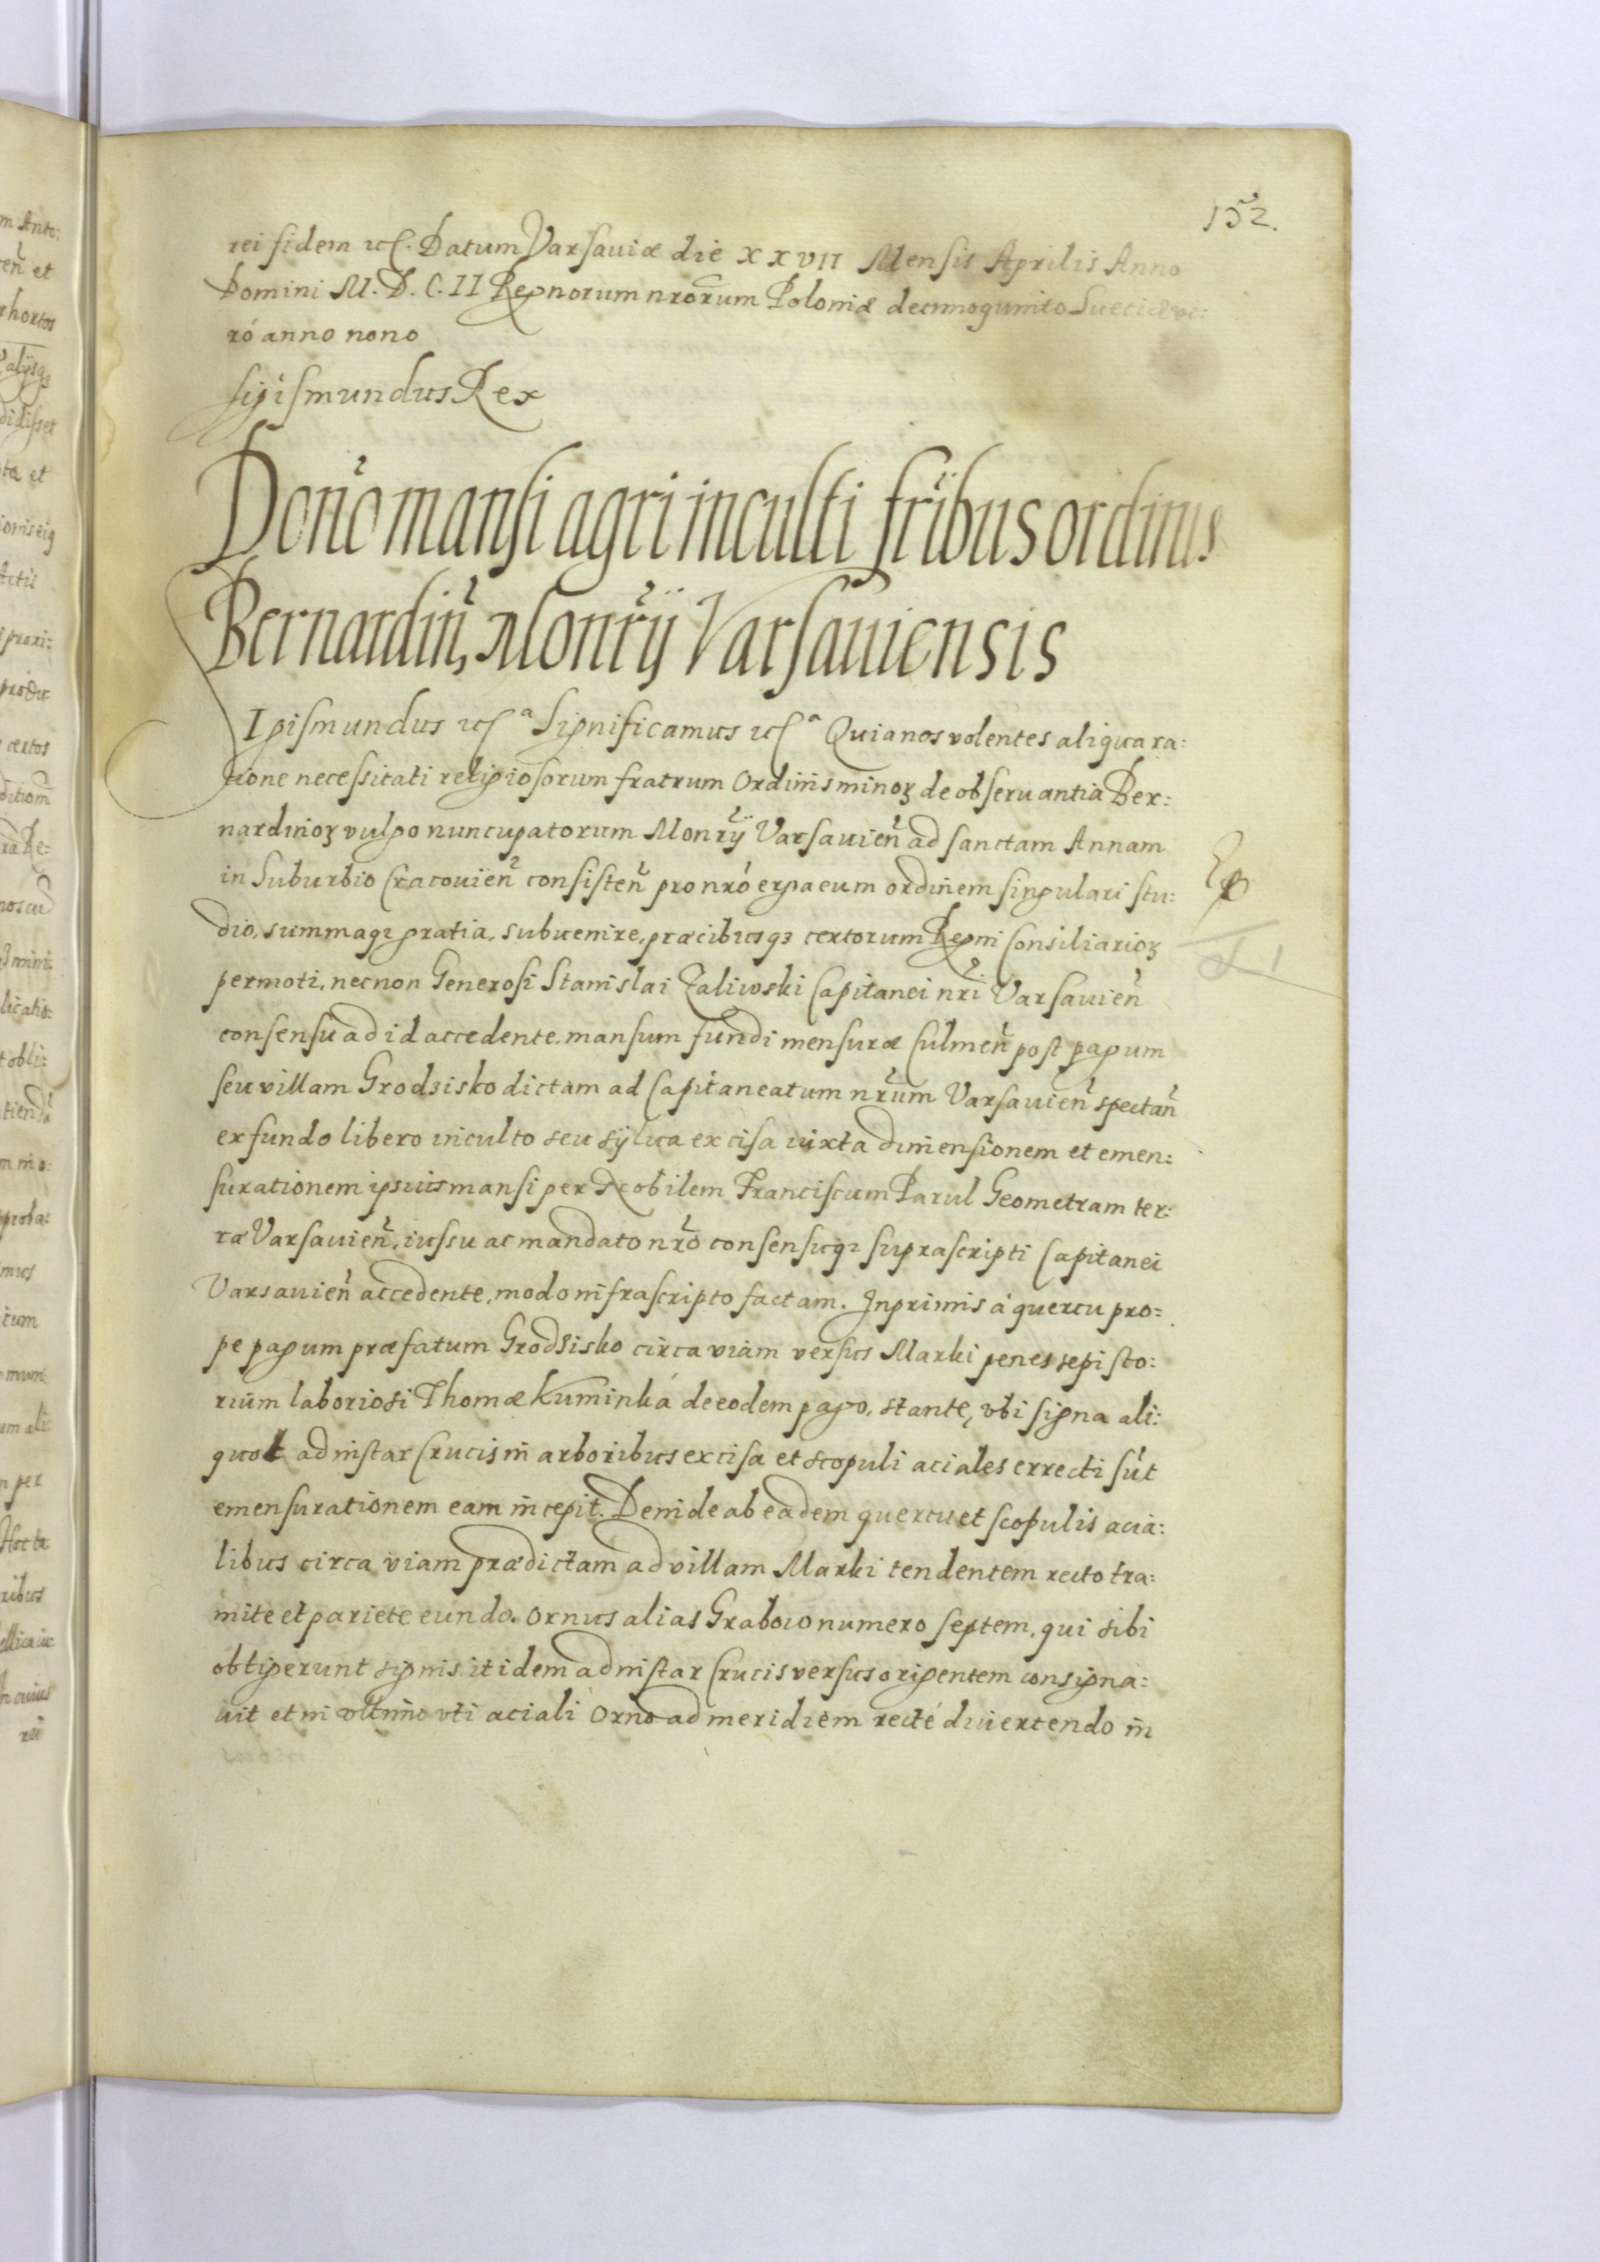 152.
rei fidem etc. Datum Varsaviæ die XXVII Mensis Aprilis Anno
Domini M. D. C. II Regnorum nrorum Poloniæ decimoquinto Sueciæ ve:
ró anno nono
Sigismundus Rex
Donõ mansi agri inculti fribus ordinis
Bernardiñ, Monrij Varsauiensis
SIgismundus etc.ᵃ Significamus etc.ᵃ Quia nos volentes aliqua ra:
tione necessitati religiosorum fratrum Ordinis minoꝝ de obseruantia Ber:
nardinoꝝ vulgo nuncupatorum Monrij Varsauieñ ad sanctam Annam
in Suburbio Cracouieñ consisteñ pro nró erga eum ordinem singulari stu:
dio, summaqꝫ gratia, subuenire, præcibusqꝫ certorum Regni Consiliarioꝝ
permoti, necnon Generosi Stanislai Zaliwski Capitanei nri Varsauieñ
consensu ad id accedente, mansum fundi mensuræ Culmeñ post pagum
seu villam Grodzisko dictam ad Capitaneatum nrum Varsauieñ spectañ
ex fundo libero inculto seu sylua excisa iuxta dimensionem et emen:
surationem ipsius mansi per Nobilem Franciscum Parul Geometram ter:
ræ Varsauieñ, iussu ac mandato nro consensuqꝫ suprascripti Capitanei
Varsauieñ accedente, modo infrascripto factam. Inprimis á quercu pro:
pe pagum præfatum Grodzisko circa viam versus Marki penes sepisto:
rium laboriosi Thomæ Kuminká de eodem pago, stante, vbi signa ali:
quot ad instar Crucis in arboribus excisa et scopuli aciales errecti sũt
emensurationem eam incepit. Deinde ab eadem quercu et scopulis acia:
libus circa viam prædictam ad villam Marki tendentem recto tra:
mite et pariete eundo. Ornus alias Grabowo numero septem, qui sibi
obtigerunt signis itidem ad instar Crucis versus origentem consigna:
uit et in vltimo vti aciali Orno ad meridiem recté diuertendo in